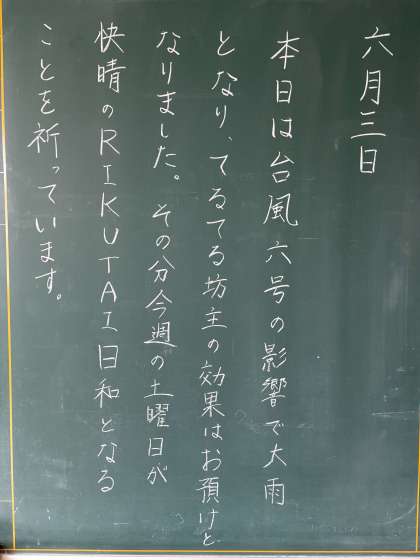 六月三日
本日は台風六号の影響で大雨
となり、てるてる坊主の効果はお預けと
なりました。その分今週の土曜日が
快晴のRIKUTAI日和となる
ことを祈っています。